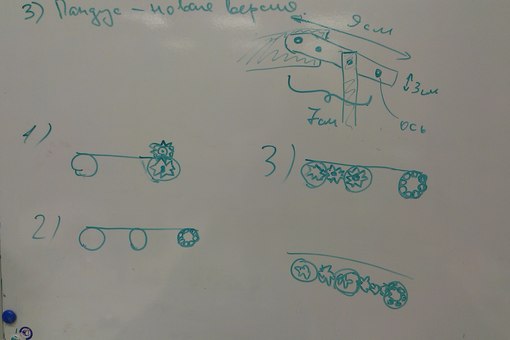 3) Пандус – новая версия.
9 см
3 см
7 см
ось
1)
3)
2)